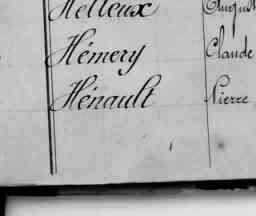 Helleux August
Hémery Claude
Hénault Pierre